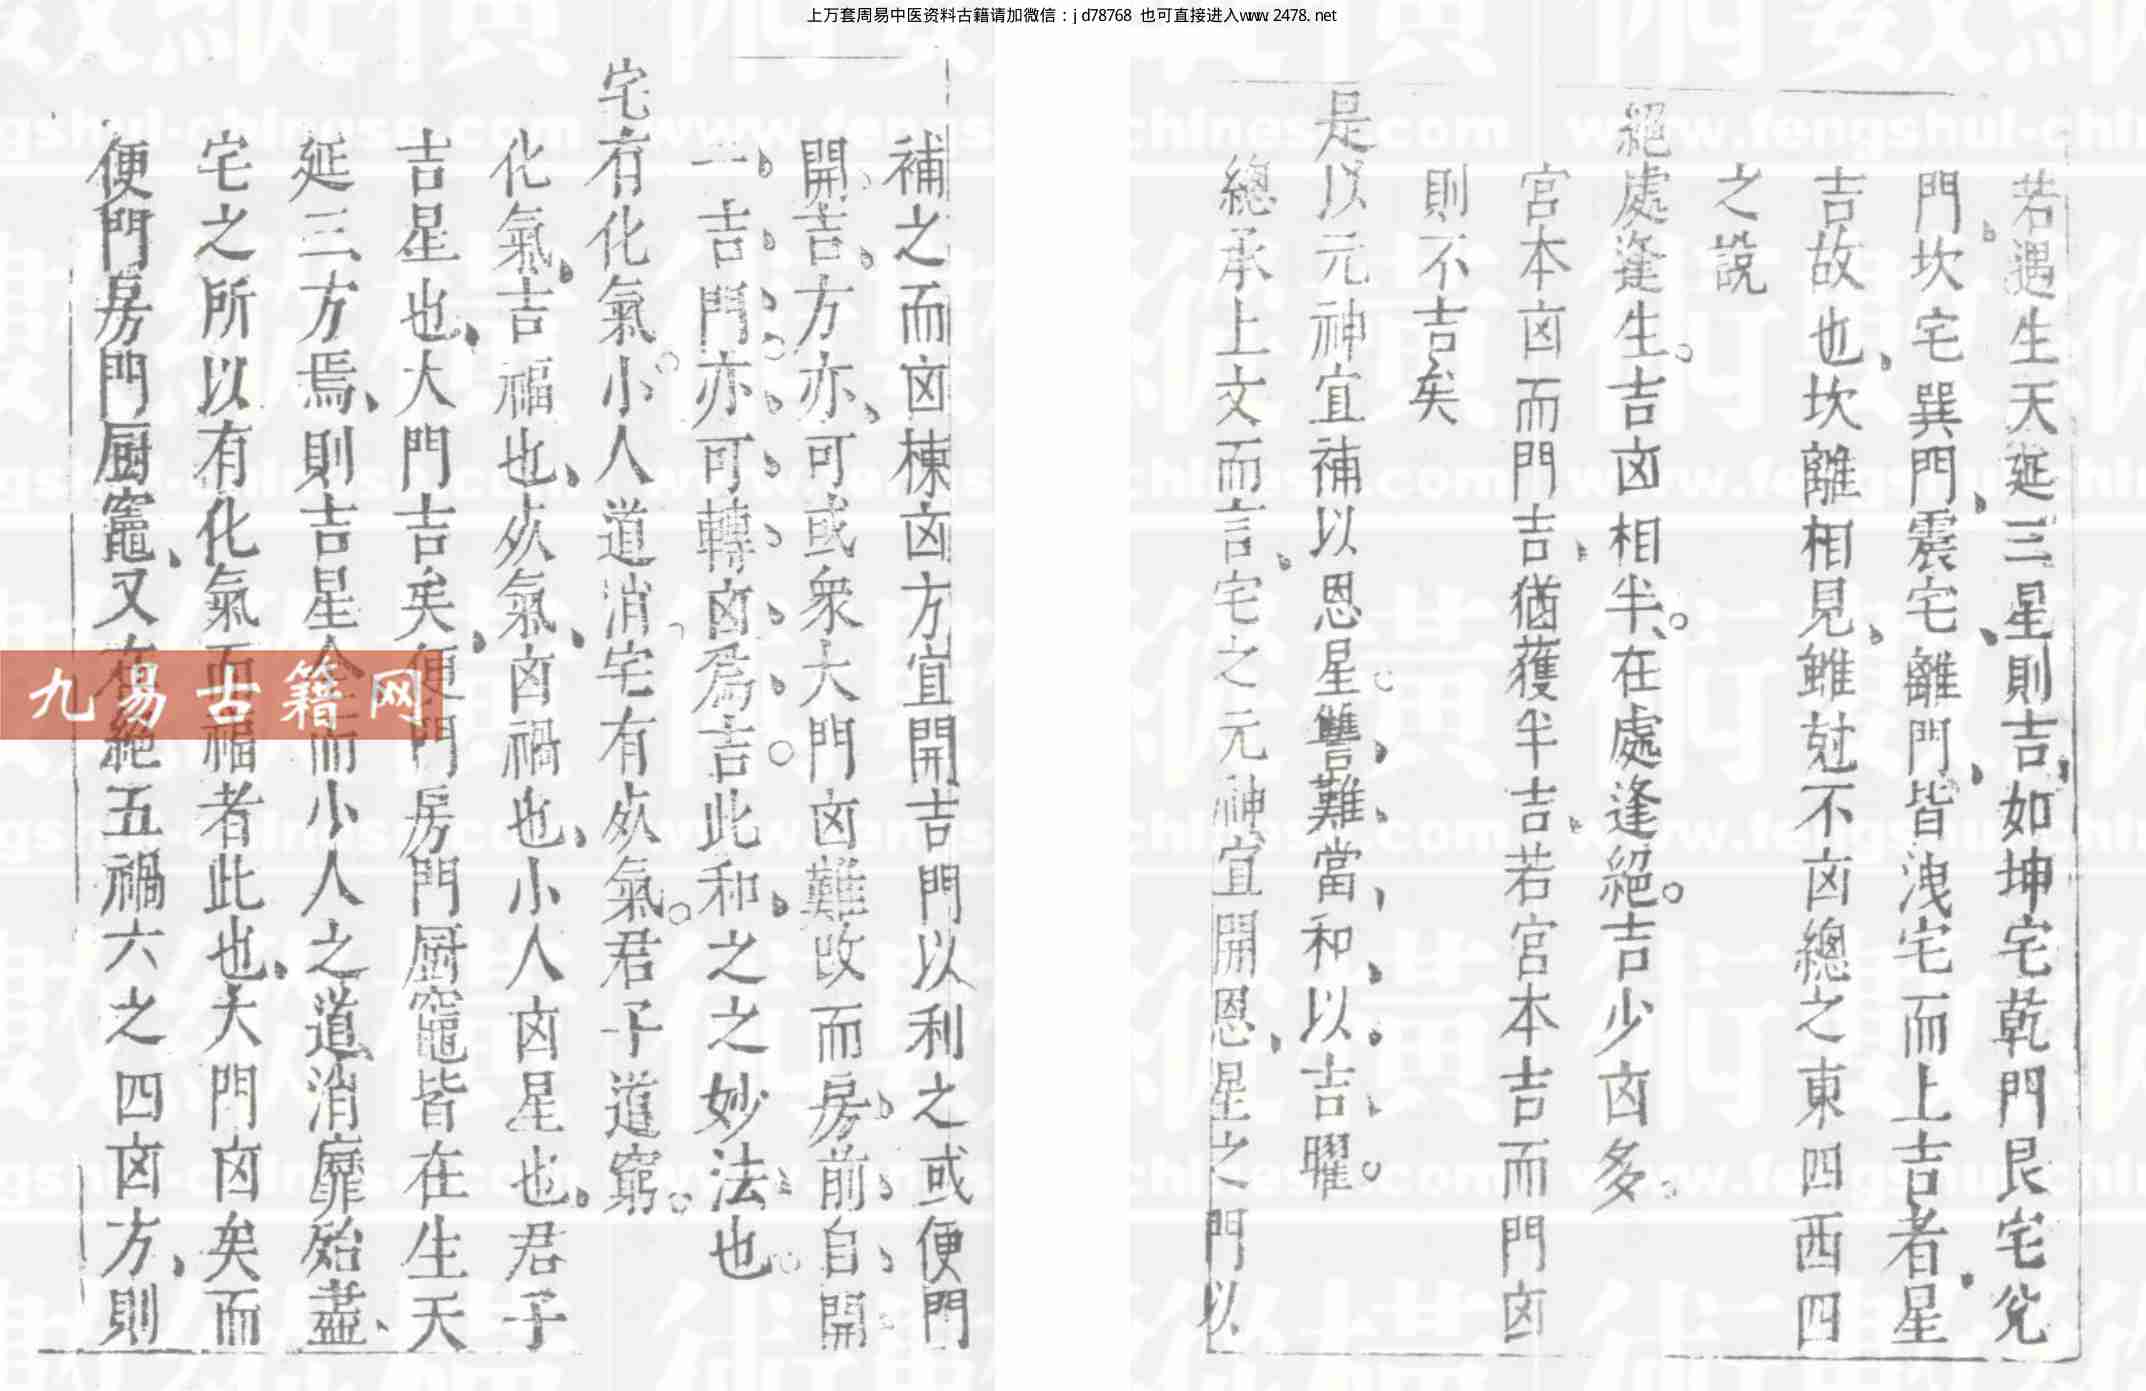 上万套周易中医资料古籍请加微信：jd78768 也可直接进入www.2478.net
若遇生天延三星則吉如坤宅乾門艮宅兊
門坎宅巽門震宅離門皆洩宅而上吉者星
吉故也坎離相見雖尅不凶總之東四西四
之說
絕處逢生吉凶相半在處逢絕吉少凶多
宮本凶而門吉猶獲半吉若宮本吉而門凶
則不吉矣
是以元神宜補以恩星讐難當和以吉曜
總承上文而言宅之元神宜開恩星之門以
補之而凶棟凶方宜開吉門以利之或便門
開吉方亦可或衆大門凶難改而房前自開
一吉門亦可轉凶爲吉此和之之妙法也
宅有化氣小人道消宅有煞氣君子道窮
化氣吉福也煞氣凶禍也小人凶星也君子
吉星也大門吉矣便門房門厨竈皆在生天
延三方焉則吉星全而小人之道消靡殆盡
宅之所以有化氣而福者此也大門凶矣而
便門房門厨竈又在絕五禍六之四凶方則
九易古籍网